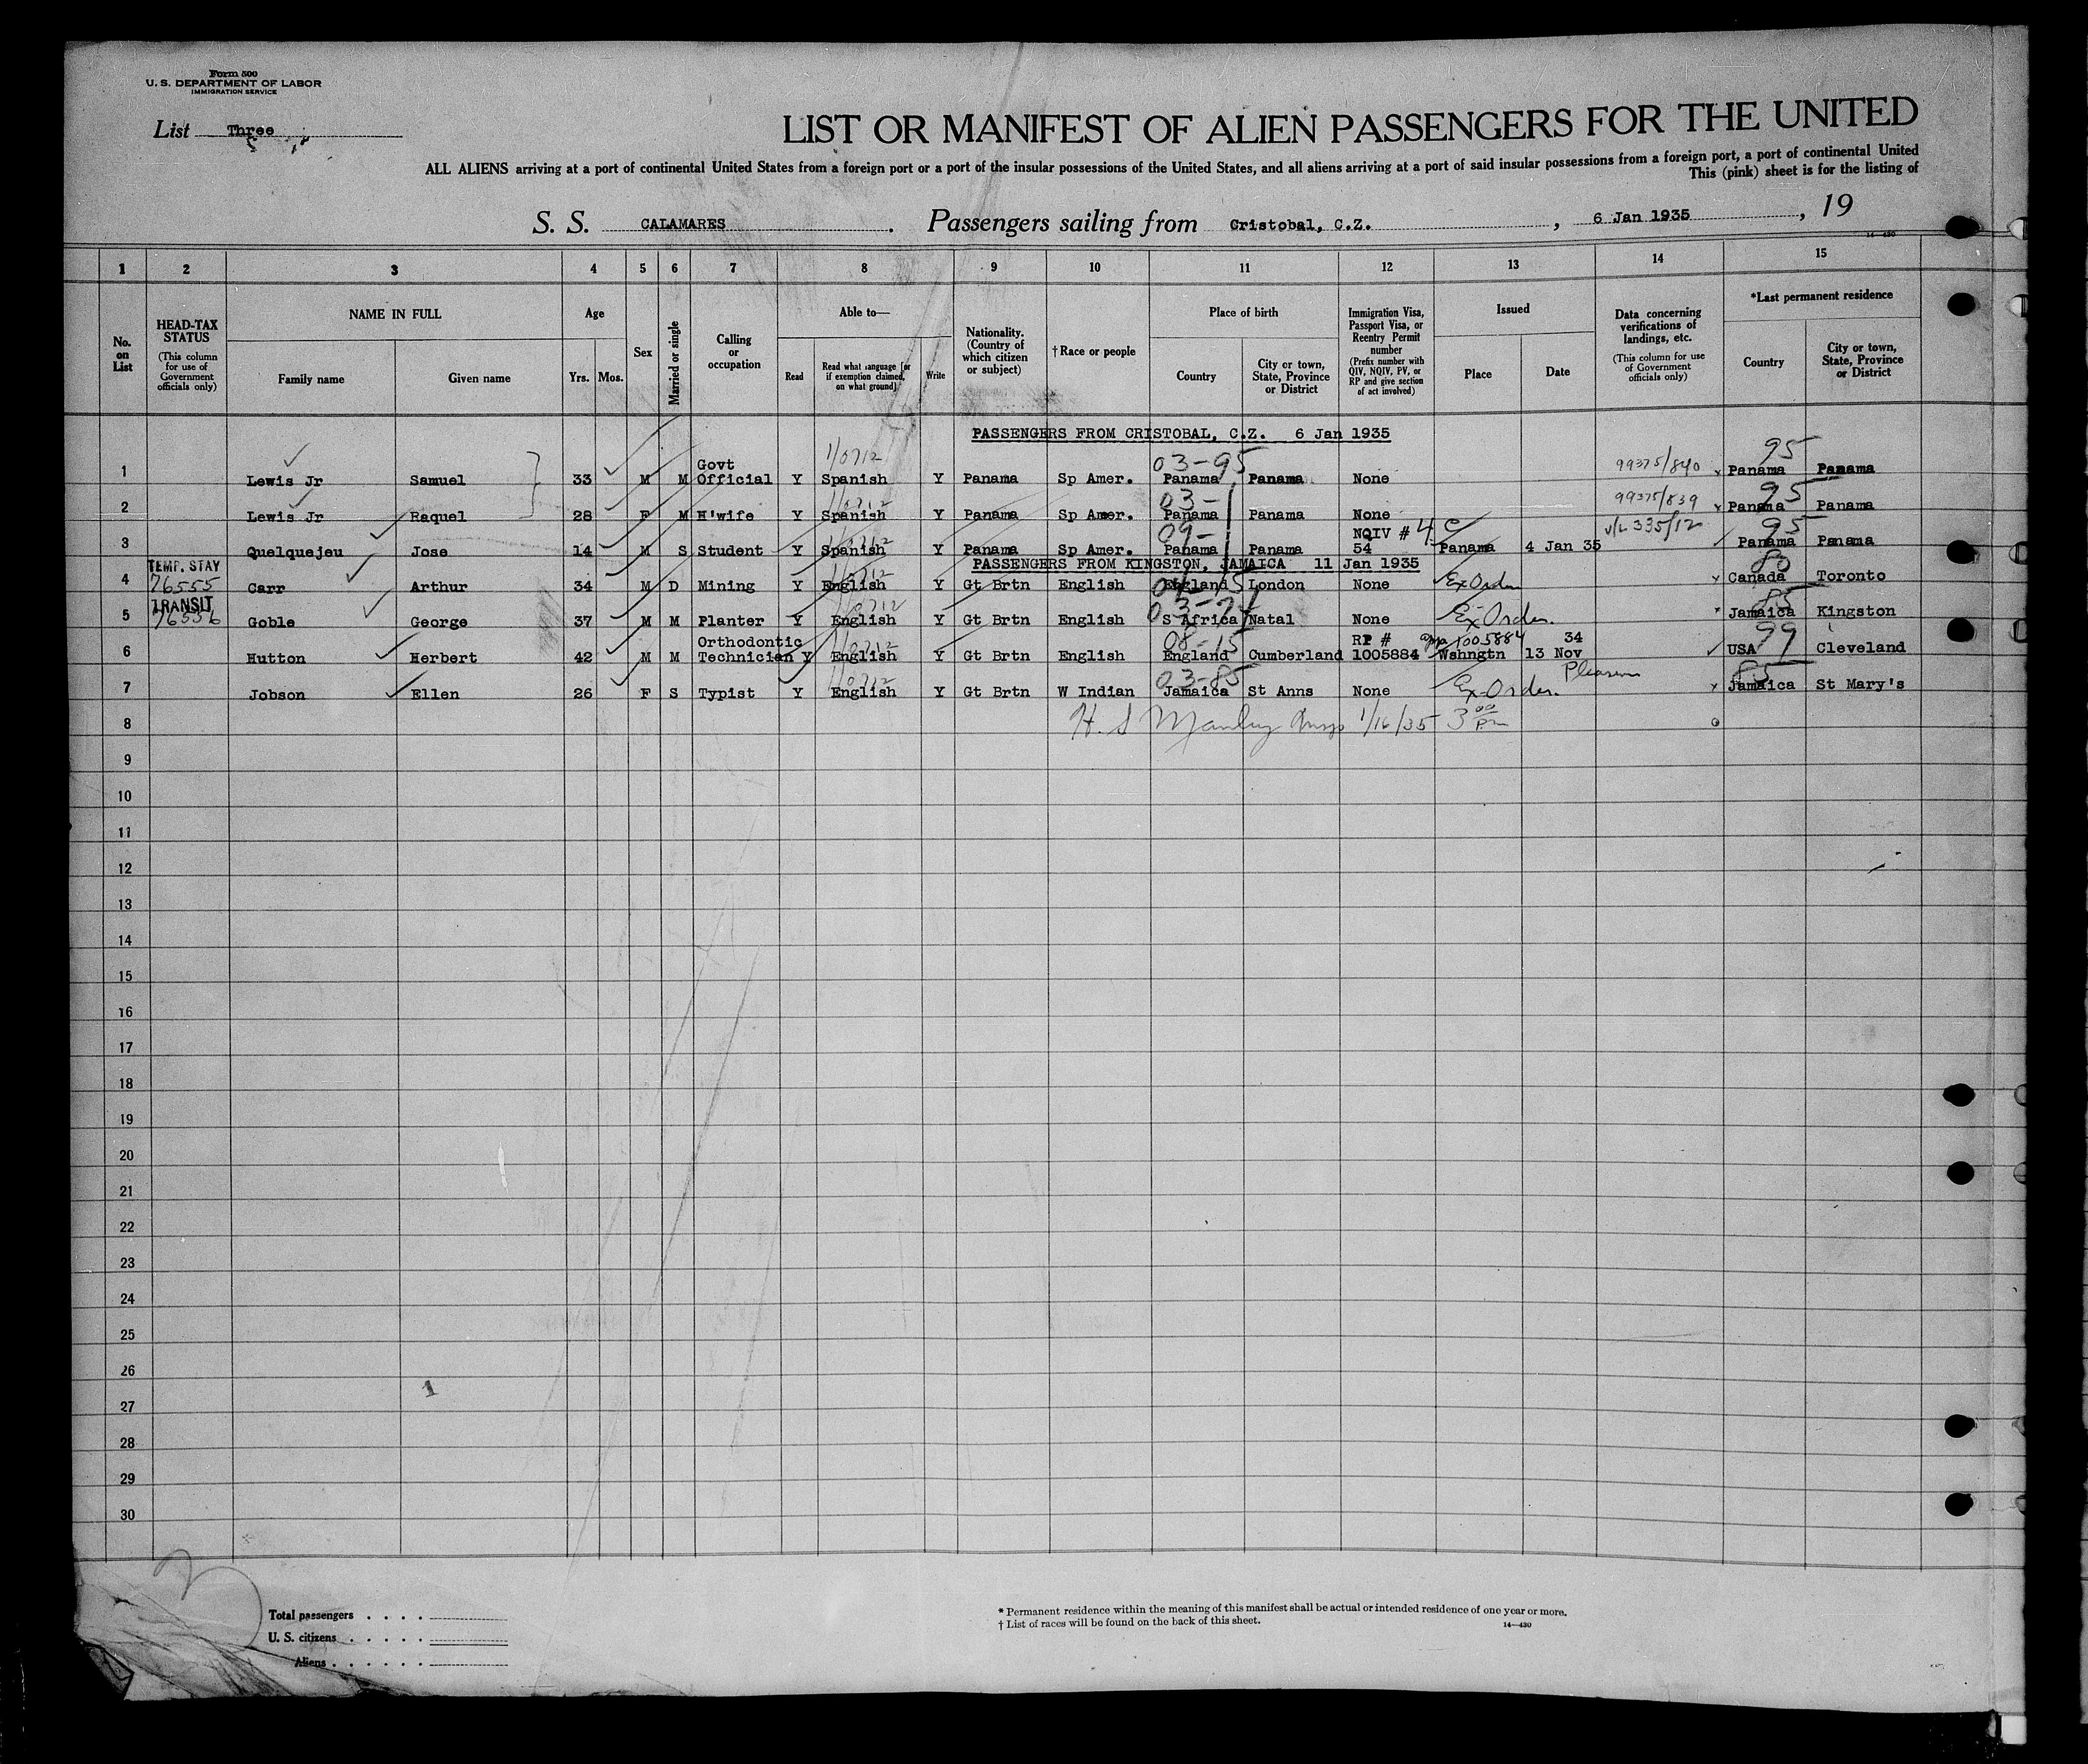 Form 500
U. S. DEPARTMENT OF LABOR
IMMIGRATION SERVICE
List Three
LIST OR MANIFEST OF ALIEN PASSENGERS FOR THE UNITED
ALL ALIENS arriving at a port of continental United States from a foreign port or a port of the insular possessions of the United States, and all aliens arriving at a port of said insular possessions from a foreign port, a port of continental United
This (pink) sheet is for the listing of
S. S. CALAMARES. Passengers sailing from Cristobal, C.Z., 6 Jan 1935, 19
14-430
1 2 3 4 5 6 7 8 9 10 11 12 13 14 15
No. on List
HEAD-TAX STATUS (This column for use of Government officials only)
NAME IN FULL
Family name Given name
Age
Yrs. Mos.
Sex
Married or single
Calling or occupation
Able to—
Read Read what language [or if exemption claimed, on what ground] Write
Nationality. (Country of which citizen or subject)
†Race or people
Place of birth
Country City or town, State, Province or District
Immigration Visa, Passport Visa, or Reentry Permit number (Prefix number with QIV, NQIV, PV, or RP and give section of act involved)
Issued
Place Date
Data concerning verifications of landings, etc. (This column for use of Government officials only)
*Last permanent residence
Country City or town, State, Province or District
PASSENGERS FROM CRISTOBAL, C.Z. 6 Jan 1935
1 Lewis Jr Samuel 33 M M Govt Official Y Spanish Y Panama Sp Amer. 03-95 Panama Panama None 99375/840 95 Panama Panama
2 Lewis Jr Raquel 28 F M H'wife Y Spanish Y Panama Sp Amer. 03- Panama Panama None 99375/839 95 Panama Panama
3 Quelquejeu Jose 14 M S Student Y Spanish Y Panama Sp Amer. 09- Panama Panama NQIV # 54 4 C Panama 4 Jan 35 V/L 335/12 95 Panama Panama
PASSENGERS FROM KINGSTON, JAMAICA 11 Jan 1935
4 TEMP. STAY 76555 Carr Arthur 34 M D Mining Y English Y Gt Brtn English England London None Ex Order 80 Canada Toronto
5 TRANSIT 76556 Goble George 37 M M Planter Y English Y Gt Brtn English S Africa Natal None Ex-Order. 85 Jamaica Kingston
6 Hutton Herbert 42 M M Orthodontic Technician Y English Y Gt Brtn English 08-15 England Cumberland RP # 1005884 1005884 Wshngtn 13 Nov 34 99 USA Cleveland
7 Jobson Ellen 26 F S Typist Y English Y Gt Brtn W Indian 03-85 Jamaica St Anns None Ex-Order. Pleasure 85 Jamaica St Mary's
8 H. S Manley Insp 1/16/35 3 00 Pm
9
10
11
12
13
14
15
16
17
18
19
20
21
22
23
24
25
26
27
28
29
30
1
Total passengers . . . .
U. S. citizens . . . . .
Aliens . . . . . .
* Permanent residence within the meaning of this manifest shall be actual or intended residence of one year or more.
† List of races will be found on the back of this sheet.
14-430